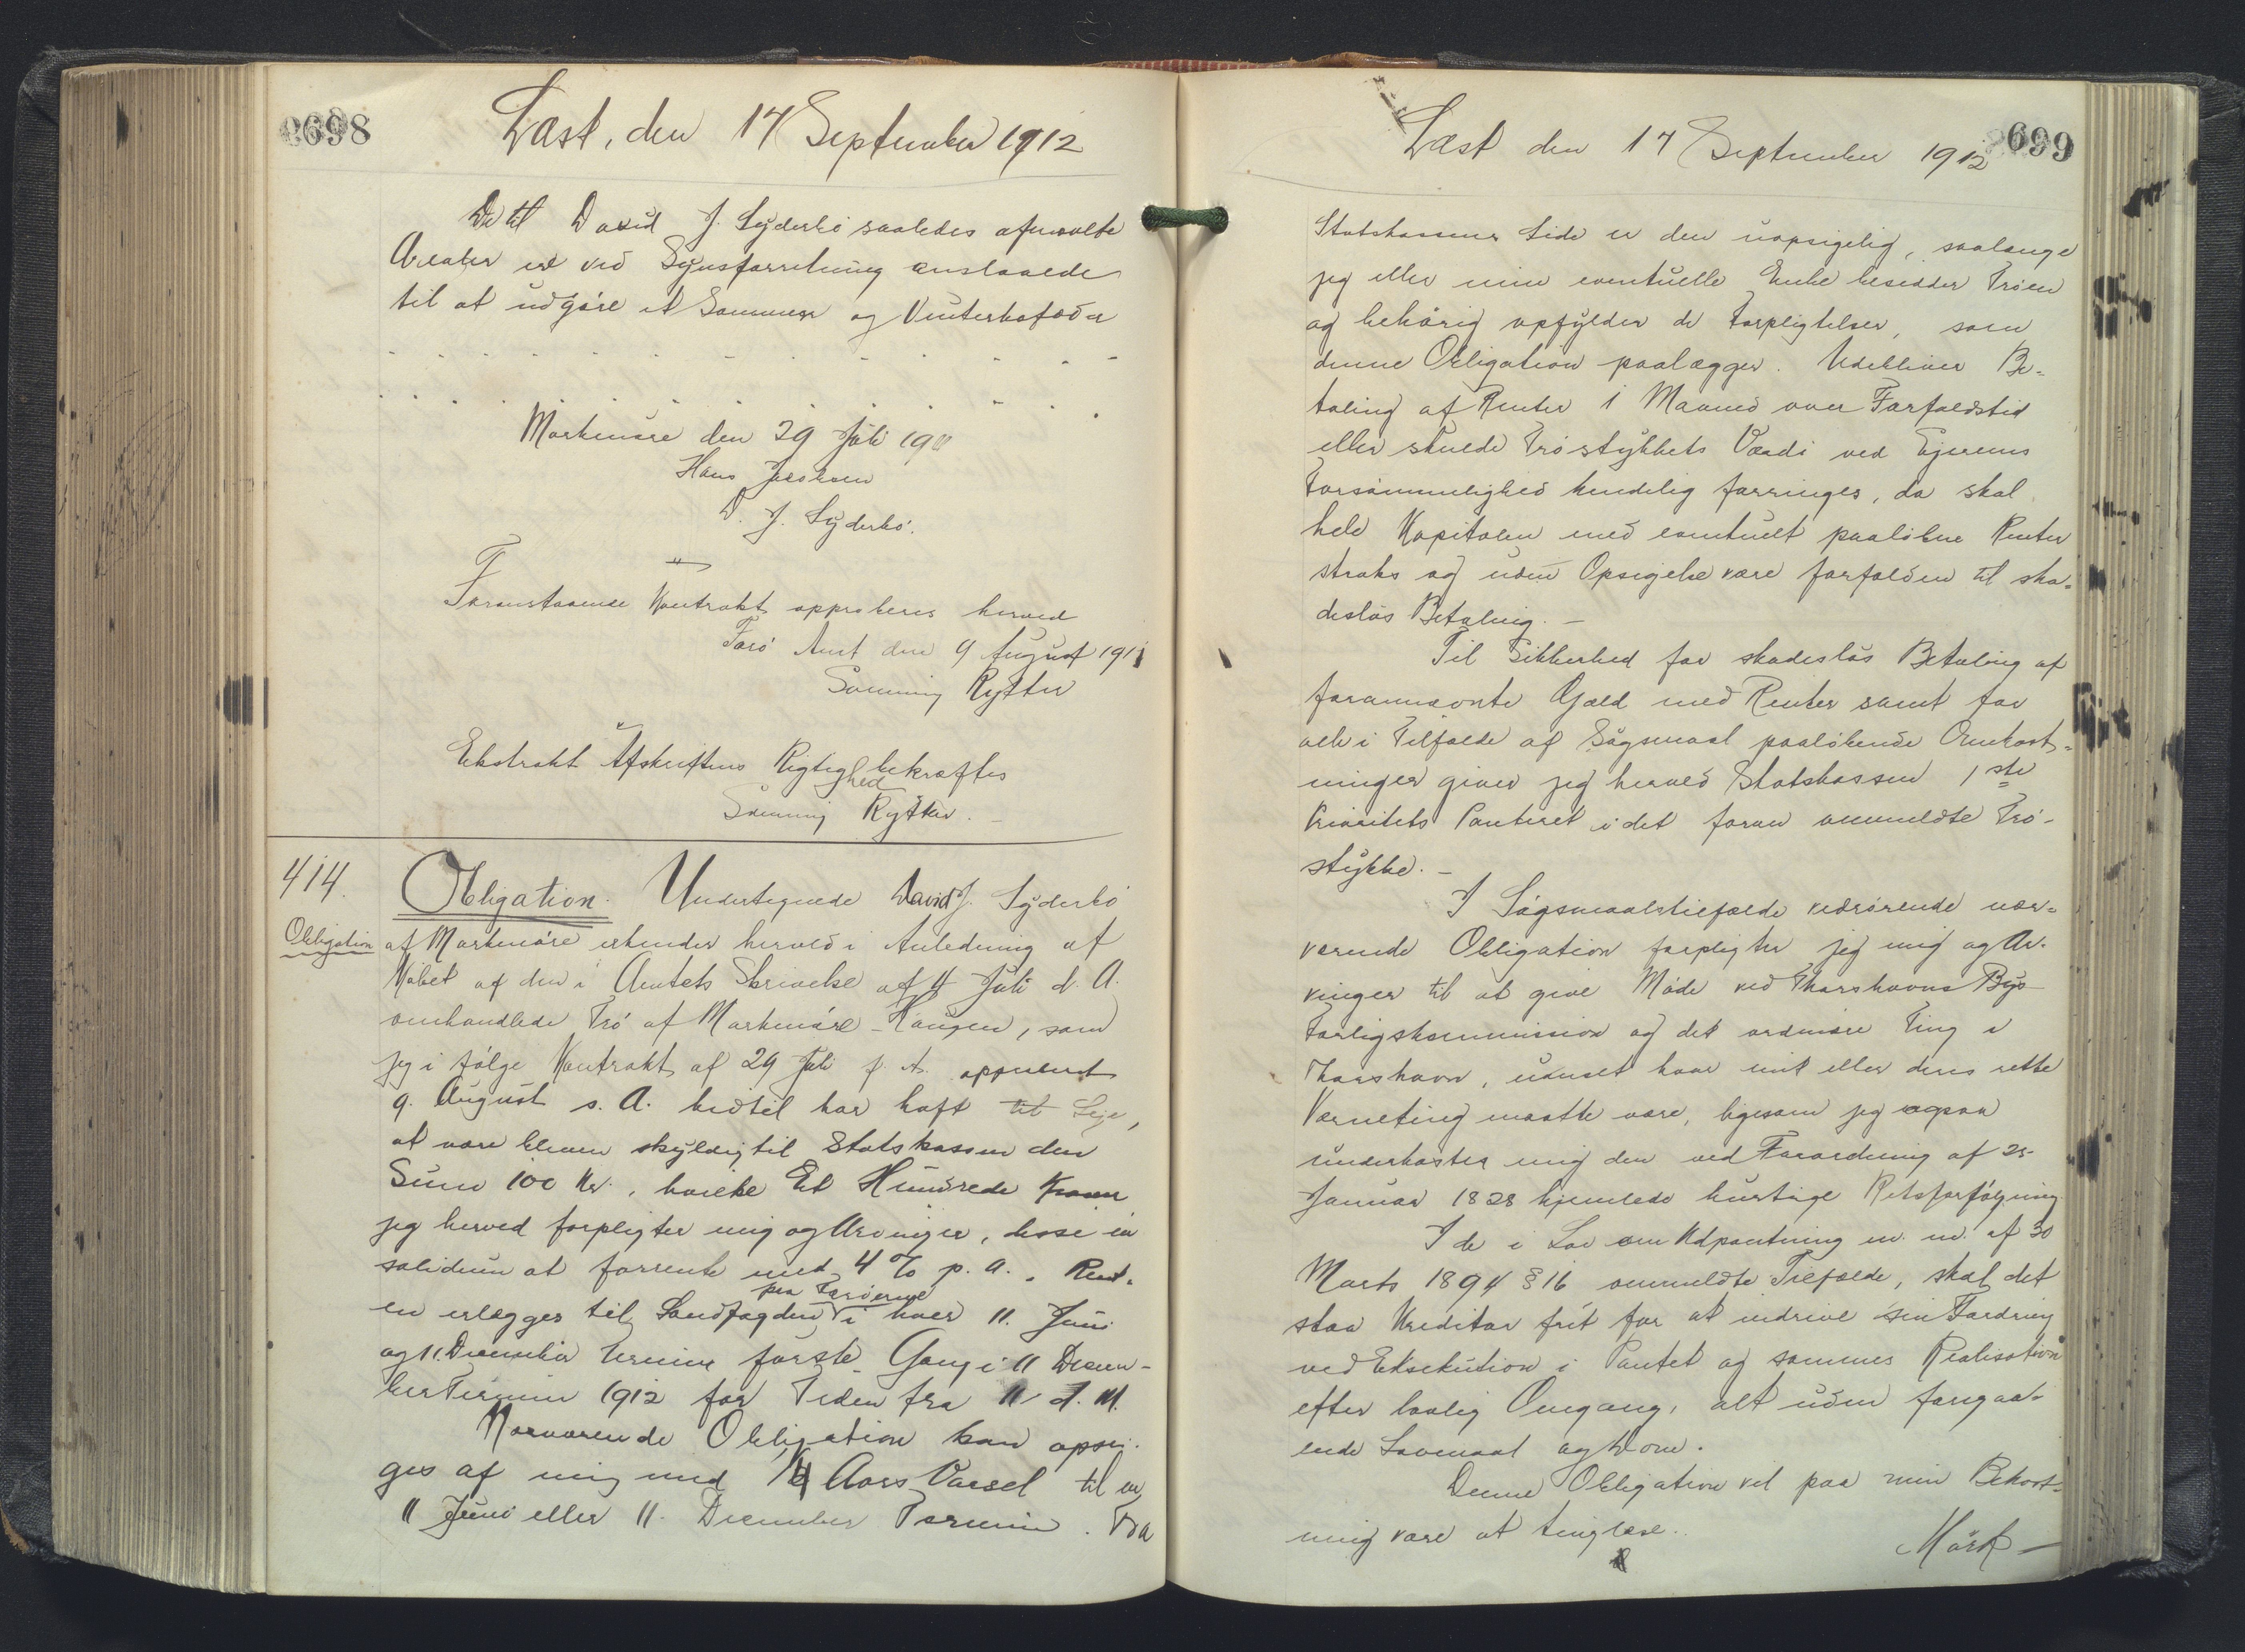 698
Læst, den 17 September 1912
De til David J. Lyderbö saaledes afmaalte
Arealer er ved Synsforretning anslaaede
til at udgøre et Sommer og Vinterkofoder
Markenøre den 29 Juli 1911
Hans Jacobsen
D. J. Lyderbö.
Foranstaaende Kontrakt approberes herved
Færø Amt den 9 August 1911
Svenning Rytter
Ekstrakt Afskriftens Rigtighed bekræftes
Svenning Rytter.
414.
Obligation
Obligation. Undertegnede David J. Lyderbö
af Markenøre erkender herved i Anledning af
Købet af den i Amtets Skrivelse af 4 Juli d. A.
omhandlede Trø af Markenøre-Haugen, som
jeg i følge Kontrakt af 29 Juli f. A. approberet
9. August s. A. hidtil har haft til Leje,
at være bleven skyldig til Statskassen den
Sum 100 Kr., hvilke Et Hundrede Kroner
jeg herved forpligter mig og Arvinger, disse in
solidum at forrente med 4 % p. a. Rent-
en erlægges til Landfogden paa Færøerne i hver 11. Juni
og 11. December Termin første Gang i 11 Decem-
ber Termin 1912 for Tiden fra 11 d. M.
Nærværende Obligation kan opsi-
ges af mig med Aars Varsel til en
11 Juni eller 11. December Termin. Fra
699
Læst den 17 September 1912
Statskassens Side er den uopsigelig, saalænge
jeg eller min eventuelle Enke besidder Trøen
og behørig opfylder de Forpligtelser, som
denne Obligation paalægger. Udebliver Be-
taling af Renter 1 Maaned over Forfaldstid
eller skulde Trøstykkets Værdi ved Ejerens
Forsømmelighed kendelig forringes, da skal
hele Kapitalen med eventuelt paaløbne Renter
straks og uden Opsigelse være forfalden til ska-
desløs Betaling. —
Til Sikkerhed for skadesløs Betaling af
forannævnte Gæld med Renter samt for
alle i Tilfælde af Søgsmaal paaløbende Omkost-
ninger giver jeg herved Statskassen 1ste
Prioritets Panteret i det foran ommeldte Trø-
stykke. —
I Søgsmaalstilfælde vedrørende nær-
værende Obligation forpligter jeg mig og Ar-
vinger til at give Møde ved Thorshavns Bys
Forligskommission og det ordinære Ting i
Thorshavn, uanset hvor mit eller deres rette
Værneting maatte være, ligesom jeg ogsaa
underkaster mig den ved Forordning af 25
Januar 1828 hjemlede hurtige Retsforfølgning
I de i Lov om Udpantning m. m. af 30
Marts 1894 § 16 ommeldte Tilfælde, skal det
staa Kreditor frit for at inddrive sin Fordring
ved Eksekution i Pantet og sammes Realisation
efter lovlig Omgang, alt uden forgaa-
ende Lovmaal og Dom.
Denne Obligation vil paa min Bekost-
ning være at tinglæse.
Mørk—